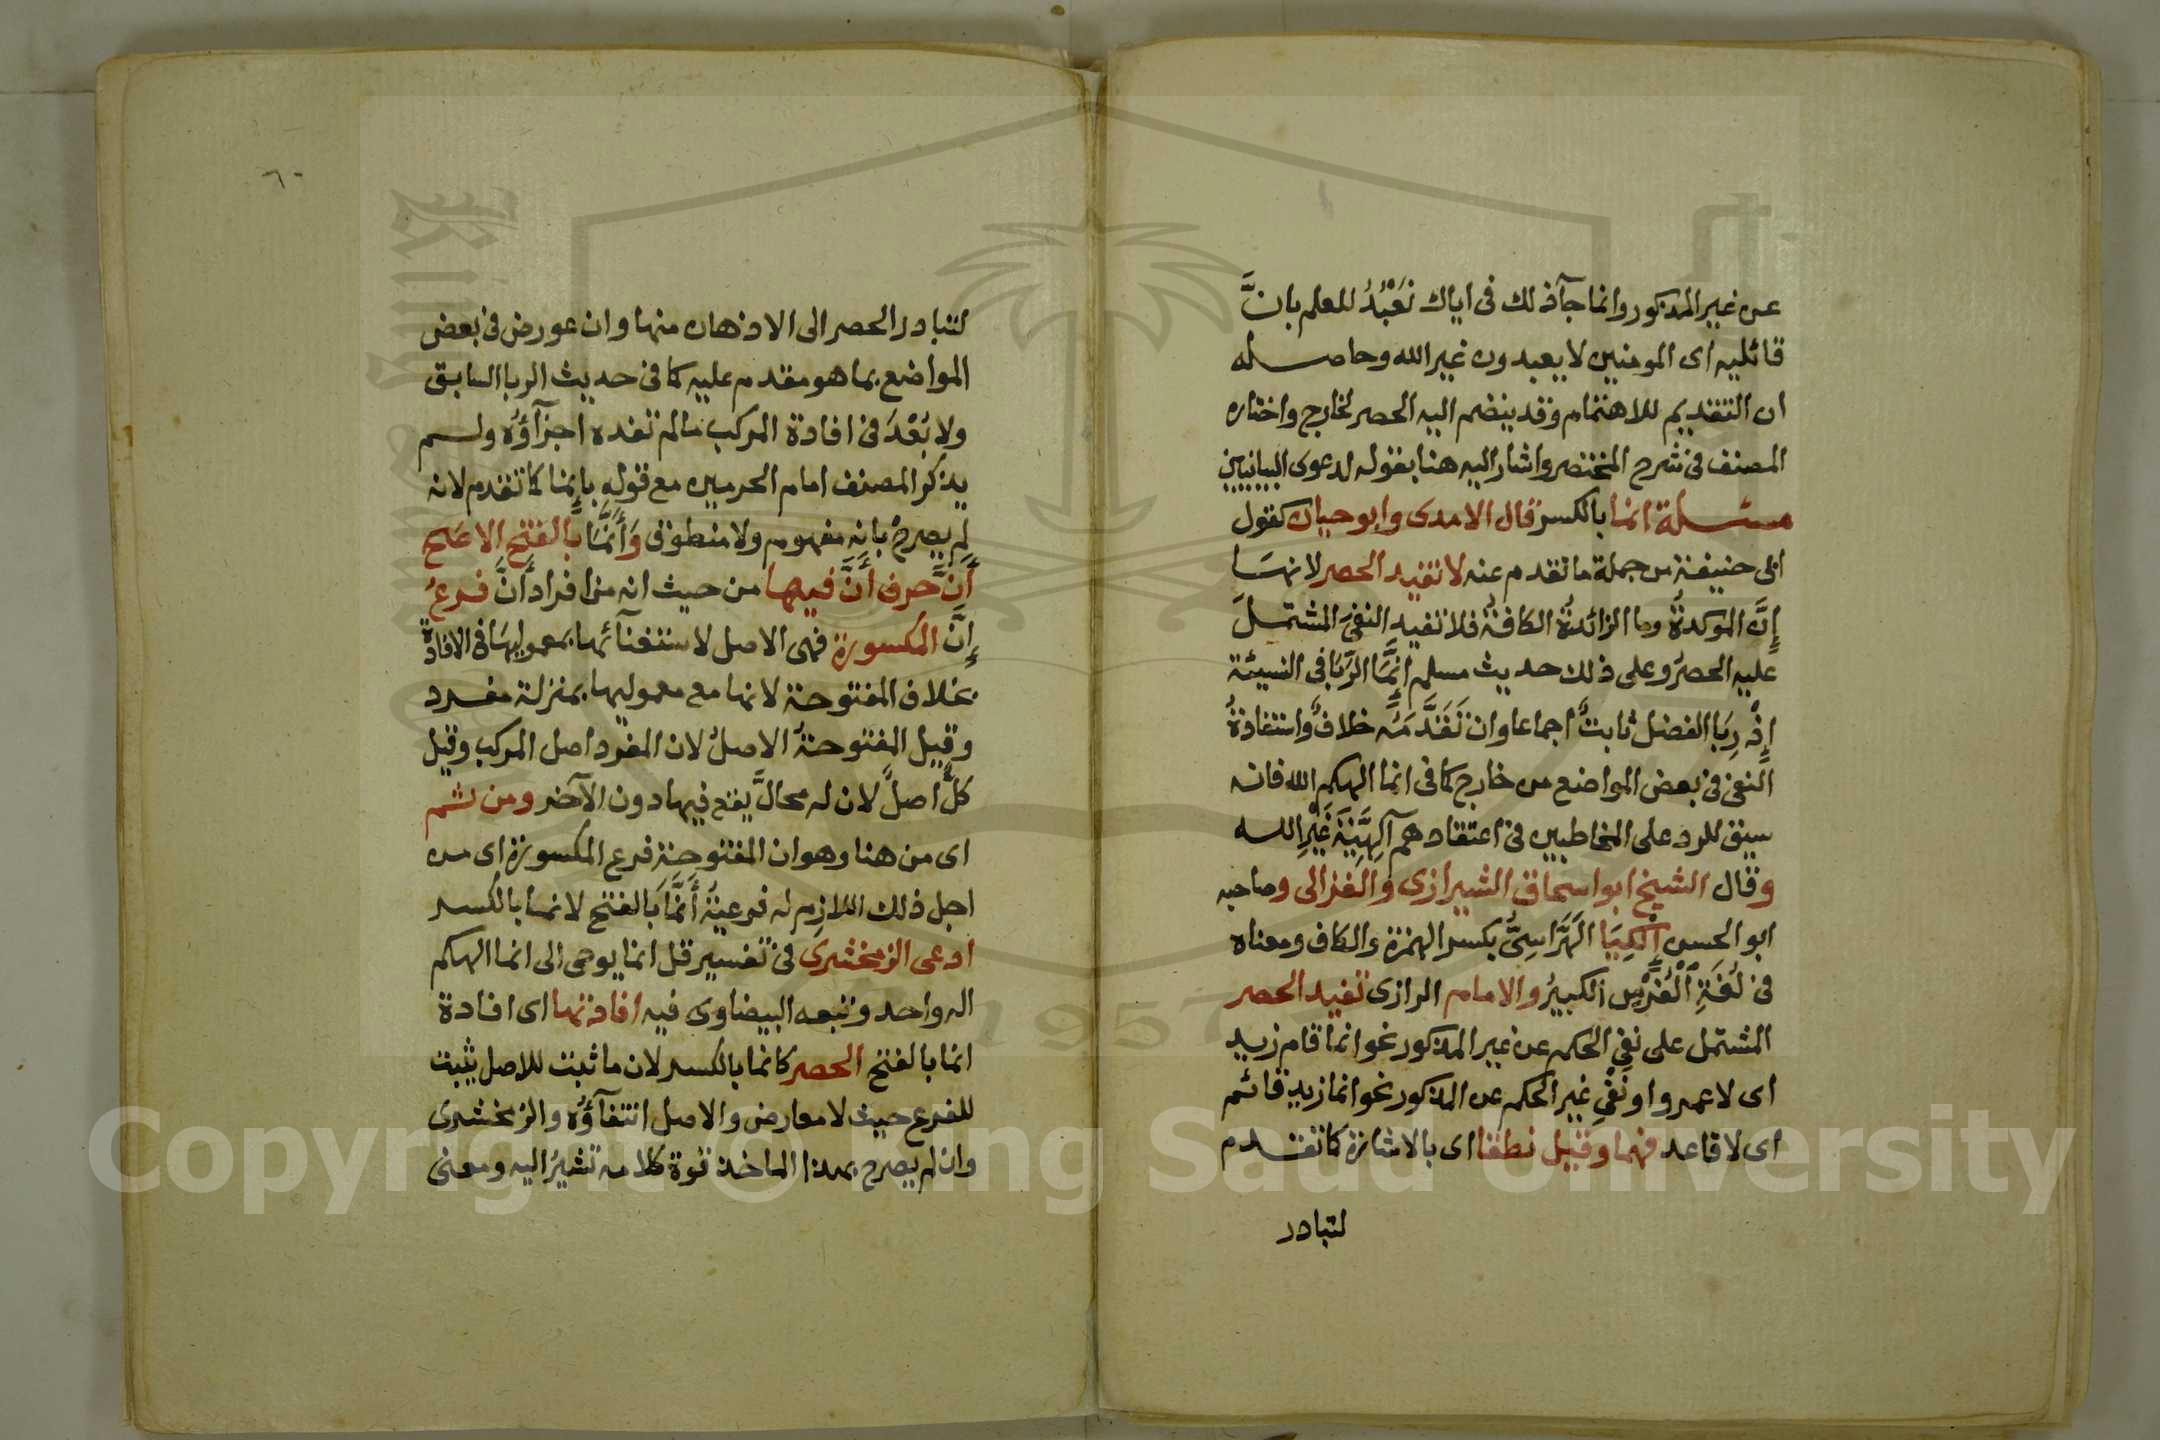 عن غير المذكور وانما جآ ذلك فى اياك نَعْبُدُ للعلم بانَّ
قائليه اى المومنين لا يعبدون غير الله وحاصله
ان التقديم للاهتمام وقد ينضم اليه الحصر لخارج واختاره
المصنف فى شرح المختصر واشار اليه هنا بقوله لدعوى البيانيين
مسئلة انما بالكسر قال الامدى وابو حيان كقول
ابى حنيفة من جملة ما تقدم عنه لا تفيد الحصر لانها
إنَّ الموكدةُ وما الزائدةُ الكافةُ فلا تفيد النفىَ المشتملَ
عليه الحصرُ وعلى ذلك حديث مسلم انَّما الرِّبَا فى النسيئة
إذْ رِبَا الفضل ثابتٌ اجماعا وان تَقَدَّمَهُ خلافٌ واستفادةُ
النفى فى بعض المواضع من خارج كما فى انما الهكم الله فانه
سيق للرد على المخاطبين فى اعتقادهم آلِهِيَّةَ غَيْرِ الله
وقال الشيخ ابو اسحاق الشيرازى والغزالى وصاحبه
ابو الحسن إلْكِيَا الهَرَّاسِىُّ بكسر الهمزة والكاف ومعناه
فى لُغَةِ الْفُرْسِ الكبيرُ والامام الرازى تفيد الحصر
المشتمل على نفى الحكم عن غير المذكور نحو انما قام زيد
اى لا عمرو او نفْىِ غير الحكم عن المذكور نحو انما زيد قائم
اى لا قاعد فهما وقيل نطقا اى بالاشارة كما تقدم
لتبادر
٦٠
لتبادر الحصر الى الاذهان منها وان عورض فى بعض
المواضع بما هو مقدم عليه كما فى حديث الربا السابق
ولا بُعْدَ فى افادة المركب ما لم تفده اجزآؤُه ولم
يذكر المصنف امام الحرمين مع قوله بإنما كما تقدم لانه
لم يصرح بانه مفهوم ولا منطوق وَأَنَّمَا بالفتح الاصح
أَنَّ حرف أَنَّ فيها من حيث انه من افراد أَنَّ فرعُ
إِنَّ المكسورة فهى الاصل لاستغنآئها بمعموليها فى الافادة
بخلاف المفتوحة لانها مع معموليها بمنزلة مفرد
وقيل المفتوحةُ الاصلُ لان المفرد اصل المركب وقيل
كلٌّ اصلٌ لان له محالَّ يقع فيها دون الآخر ومن ثم
اى من هنا وهو ان المفتوحة فرع المكسورة اى من
اجل ذلك اللازم له فرعيةُ أَنَّمَا بالفتح لانما بالكسر
ادعى الزمخشرى فى تفسير قل انما يوحى الى انما الهكم
اله واحد وتبعه البيضاوى فيه افادتها اى افادة
انما بالفتح الحصر كانما بالكسر لان ما ثبت للاصل يثبت
للفرع حيث لا معارض والاصل انتفآؤُه والزمخشرى
وان لم يصرح بهذا الماخذ قوة كلامه تشيرُ اليه ومعنى
Copyright © King Saud University
1957